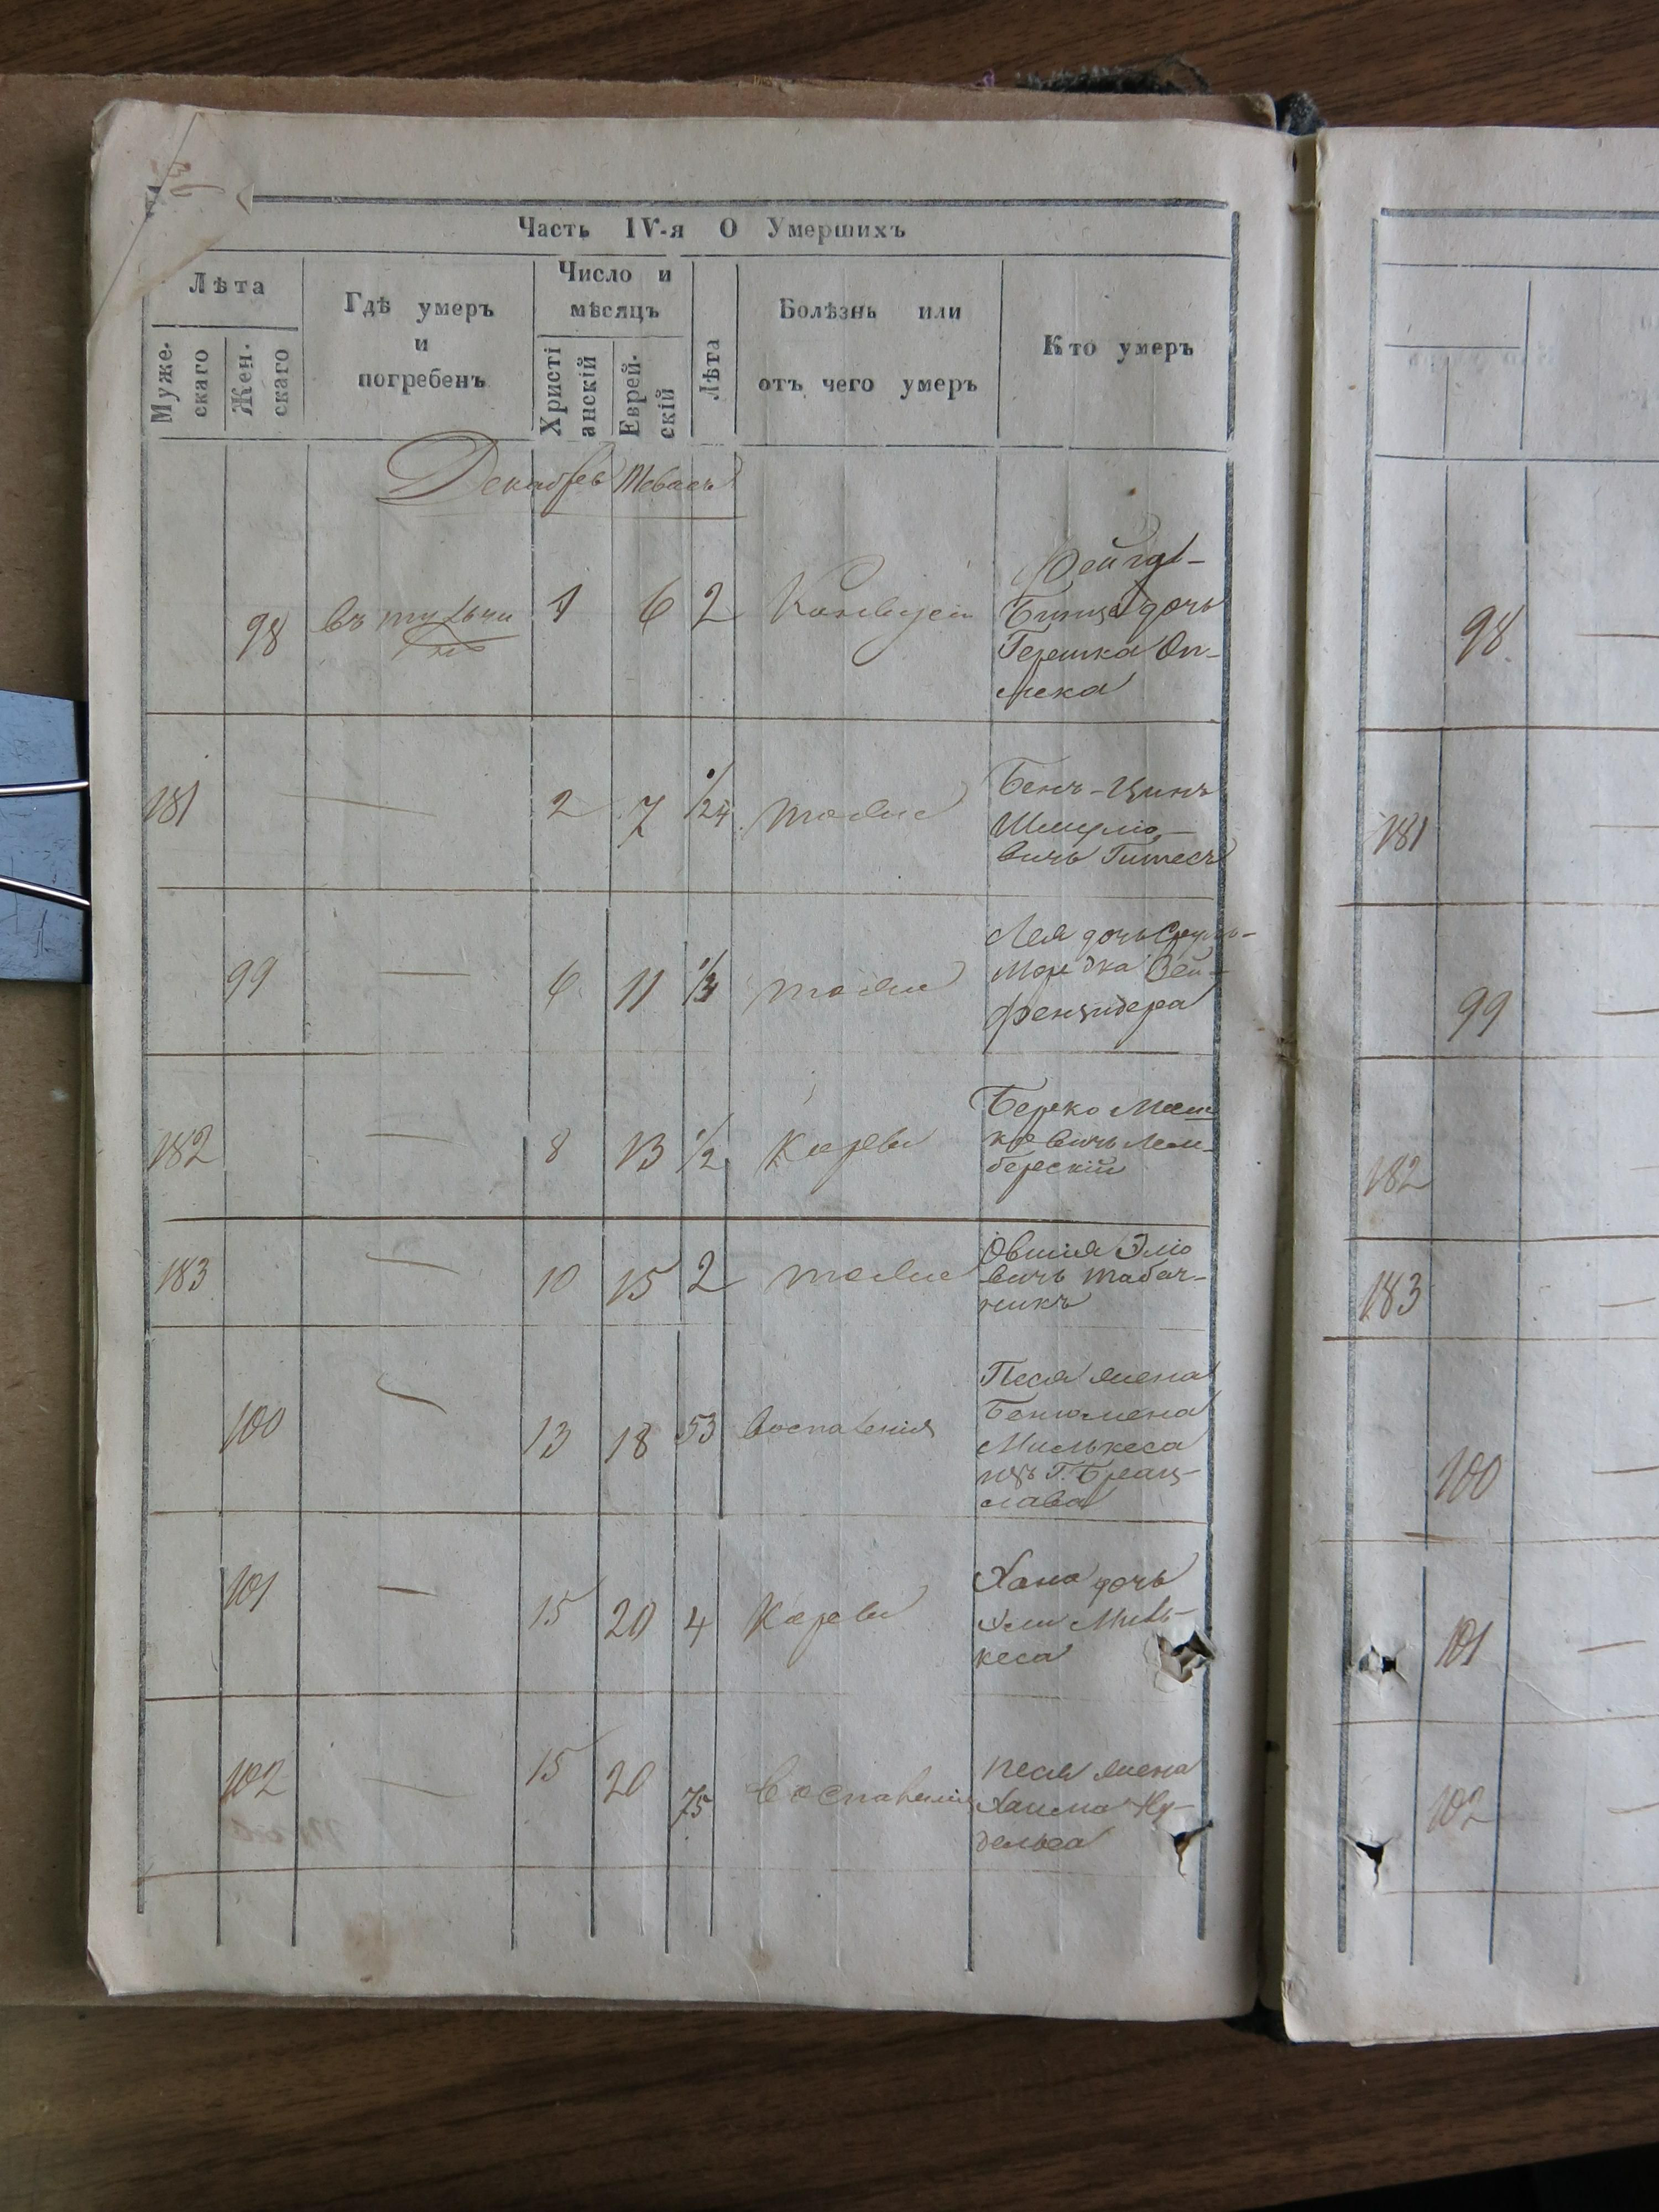 Часть IV-я О Умершихъ
Лѣта
Муже-
скаго
Жен-
скаго
Гдѣ умеръ
и
погребенъ
Число и
мѣсяцъ
Христі
анскій
Еврей-
скій
Лѣта
Болѣзнь или
отъ чего умеръ
Кто умеръ
Декабрь Тевасъ
98 въ тульчи
нѣ 1 6 2
Фейга-
дочь
Гершка Оп-
мека
181 — 2 7 1/24 тоже
Бенъ-Ционъ
Шмуліо-
вичъ Гитесъ
99 — 6 11 1/3 тоже
Лея дочь Сруль-
Мордка Вей-
182 — 8 13 1/2 Кореви
Берко Мош
ковичъ Лем-
берскій
183 — 10 15 2 тоже
Овшія Эліо
вичъ табач-
никъ
100 — 13 18 53 воспаленія
Песя жена
Бенюмена
Милькеса
изъ Г. Брац-
слава
101 — 15 20 4 Кореви
Хана дочь
Эли Миль-
кеса
102 — 15 20 75 воспаленія
песя жена
Хаима Ну-
дельса
98 —
181 —
99 —
182
183 —
100 —
101 —
102 —